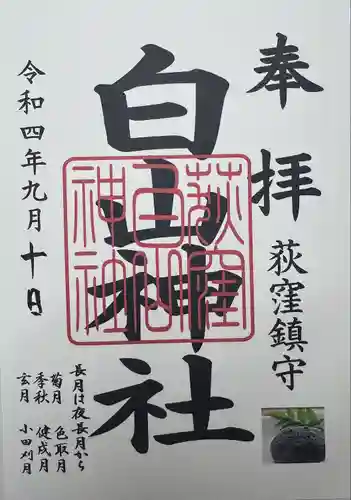 奉拝
荻窪鎮守
白山神社
荻窪白山神社
令和四年九月十日
長月は夜長月から
菊月 色取月
季秋 健戌月
玄月 小田刈月